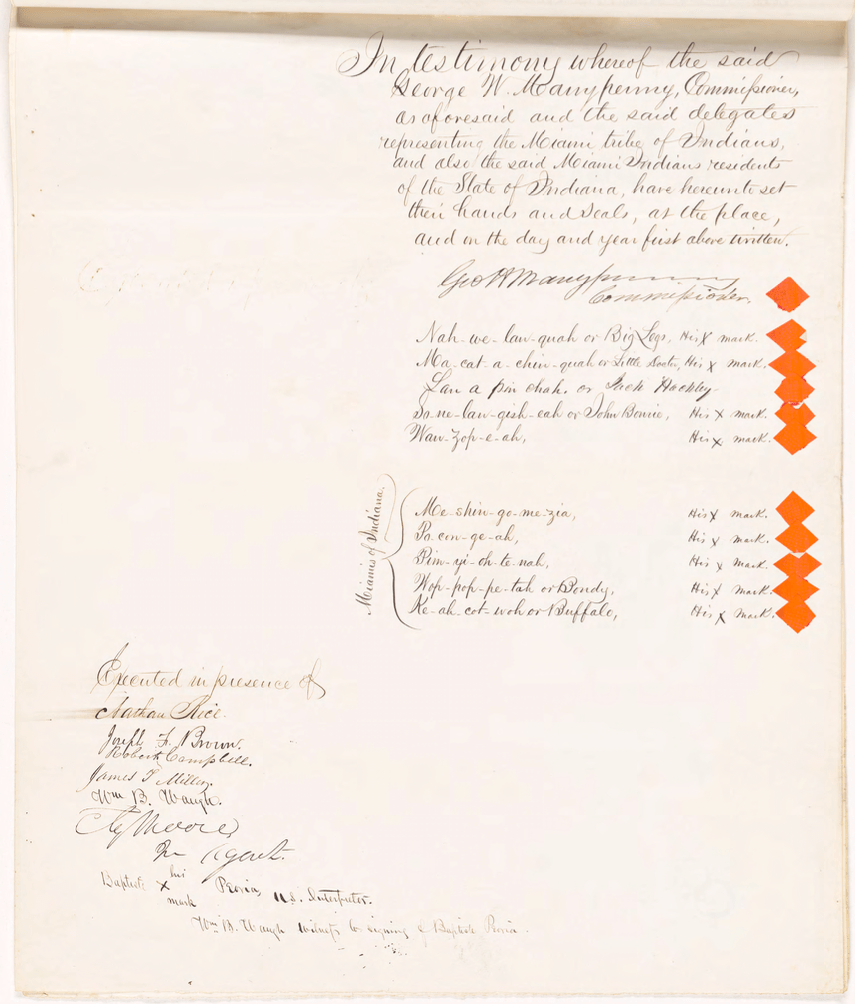 In testimony whereof the said
George W. Manypenny, Commissioner,
as aforesaid and the said delegates
representing the Miami tribe of Indians,
and also the said Miami Indians residents
of the State of Indiana, have hereunto set
their hands and seals, at the place,
and on the day and year first above written.
Geo W Manypenny
Commissioner.
Nah-we-lan-quah or Big Legs, His X mark.
Ma-cat-a-chin-quah or Little Doctor, His X mark.
Lan a pin chah. or Jack Hackley
So-ne-lan-gish-eah or John Bowrie, His X mark.
Wan-zop-e-ah, His X mark.
Miamis of Indiana.
Me-shin-go-me-zia, His X mark.
Po-con-ge-ah, His X mark.
Pim-yi-oh-te-nah, His X mark.
Wop-pop-pe-tah or Bondy, His X mark.
Ke-ah-cot-woh or Buffalo, His X mark.
Executed in presence of
Nathan Rice.
Joseph F. Brown.
Robert Campbell.
James T Miller.
Wm B. Waugh.
Ely Moore
Agent.
Baptiste his X mark Peoria, U.S. Interpreter.
Wm B. Waugh witness to signing of Baptiste Peoria